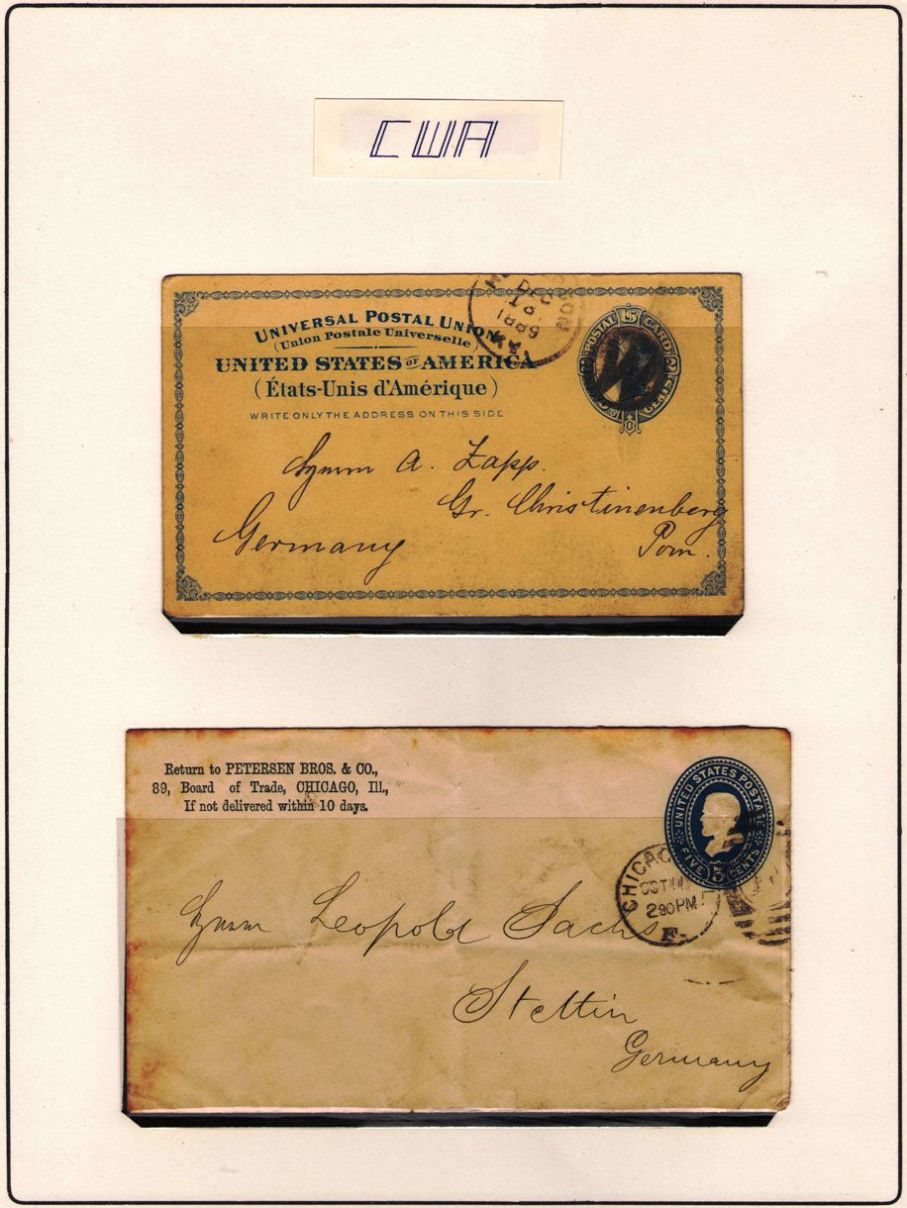 CWA
UNIVERSAL POSTAL UNION
(Union Postale Universelle)
UNITED STATES OF AMERICA
(États-Unis d'Amérique)
WRITE ONLY THE ADDRESS ON THIS SIDE
DEC
1889
POSTAL CARD
U S
CENTS
A. Zapp.
Gr. Christinenberg
Germany
Pom.
Return to PETERSEN BROS. & CO.,
89, Board of Trade, CHICAGO, Ill.,
If not delivered within 10 days.
UNITED STATES POSTAGE
FIVE 5 CENTS
CHICAGO
OCT
230PM
F.
Leopold Sachs
Stettin
Germany